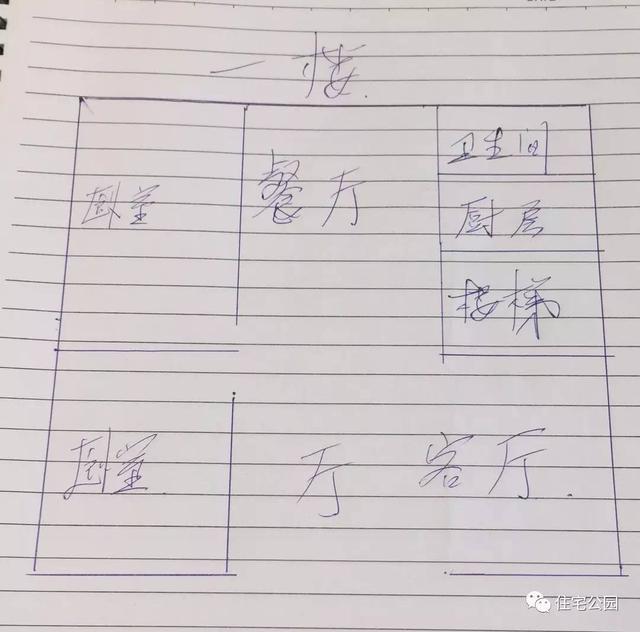 一楼
卫生间
卧室
餐厅
厨房
楼梯
卧室
厅
客厅
住宅公园